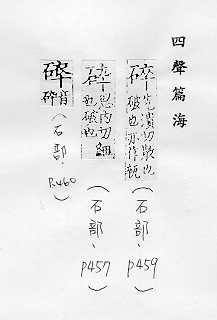 四聲篇海
碎先潰切散也破也亦作䪡
(石部、P459)
砕思内切細也破也
(石部、P457)
音碎
(石部、P460)